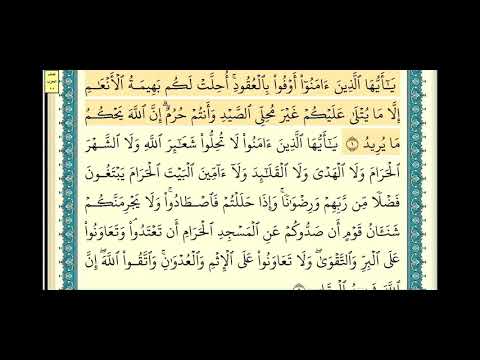 يَـٰٓأَيُّهَا ٱلَّذِينَ ءَامَنُوٓا۟ أَوْفُوا۟ بِٱلْعُقُودِ ۚ أُحِلَّتْ لَكُم بَهِيمَةُ ٱلْأَنْعَـٰمِ
إِلَّا مَا يُتْلَىٰ عَلَيْكُمْ غَيْرَ مُحِلِّى ٱلصَّيْدِ وَأَنتُمْ حُرُمٌ ۗ إِنَّ ٱللَّهَ يَحْكُمُ
مَا يُرِيدُ ١ يَـٰٓأَيُّهَا ٱلَّذِينَ ءَامَنُوا۟ لَا تُحِلُّوا۟ شَعَـٰٓئِرَ ٱللَّهِ وَلَا ٱلشَّهْرَ
ٱلْحَرَامَ وَلَا ٱلْهَدْىَ وَلَا ٱلْقَلَـٰٓئِدَ وَلَآ ءَآمِّينَ ٱلْبَيْتَ ٱلْحَرَامَ يَبْتَغُونَ
فَضْلًا مِّن رَّبِّهِمْ وَرِضْوَٰنًا ۚ وَإِذَا حَلَلْتُمْ فَٱصْطَادُوا۟ ۚ وَلَا يَجْرِمَنَّكُمْ
شَنَـَٔانُ قَوْمٍ أَن صَدُّوكُمْ عَنِ ٱلْمَسْجِدِ ٱلْحَرَامِ أَن تَعْتَدُوا۟ ۘ وَتَعَاوَنُوا۟
عَلَى ٱلْبِرِّ وَٱلتَّقْوَىٰ ۖ وَلَا تَعَاوَنُوا۟ عَلَى ٱلْإِثْمِ وَٱلْعُدْوَٰنِ ۚ وَٱتَّقُوا۟ ٱللَّهَ ۖ إِنَّ